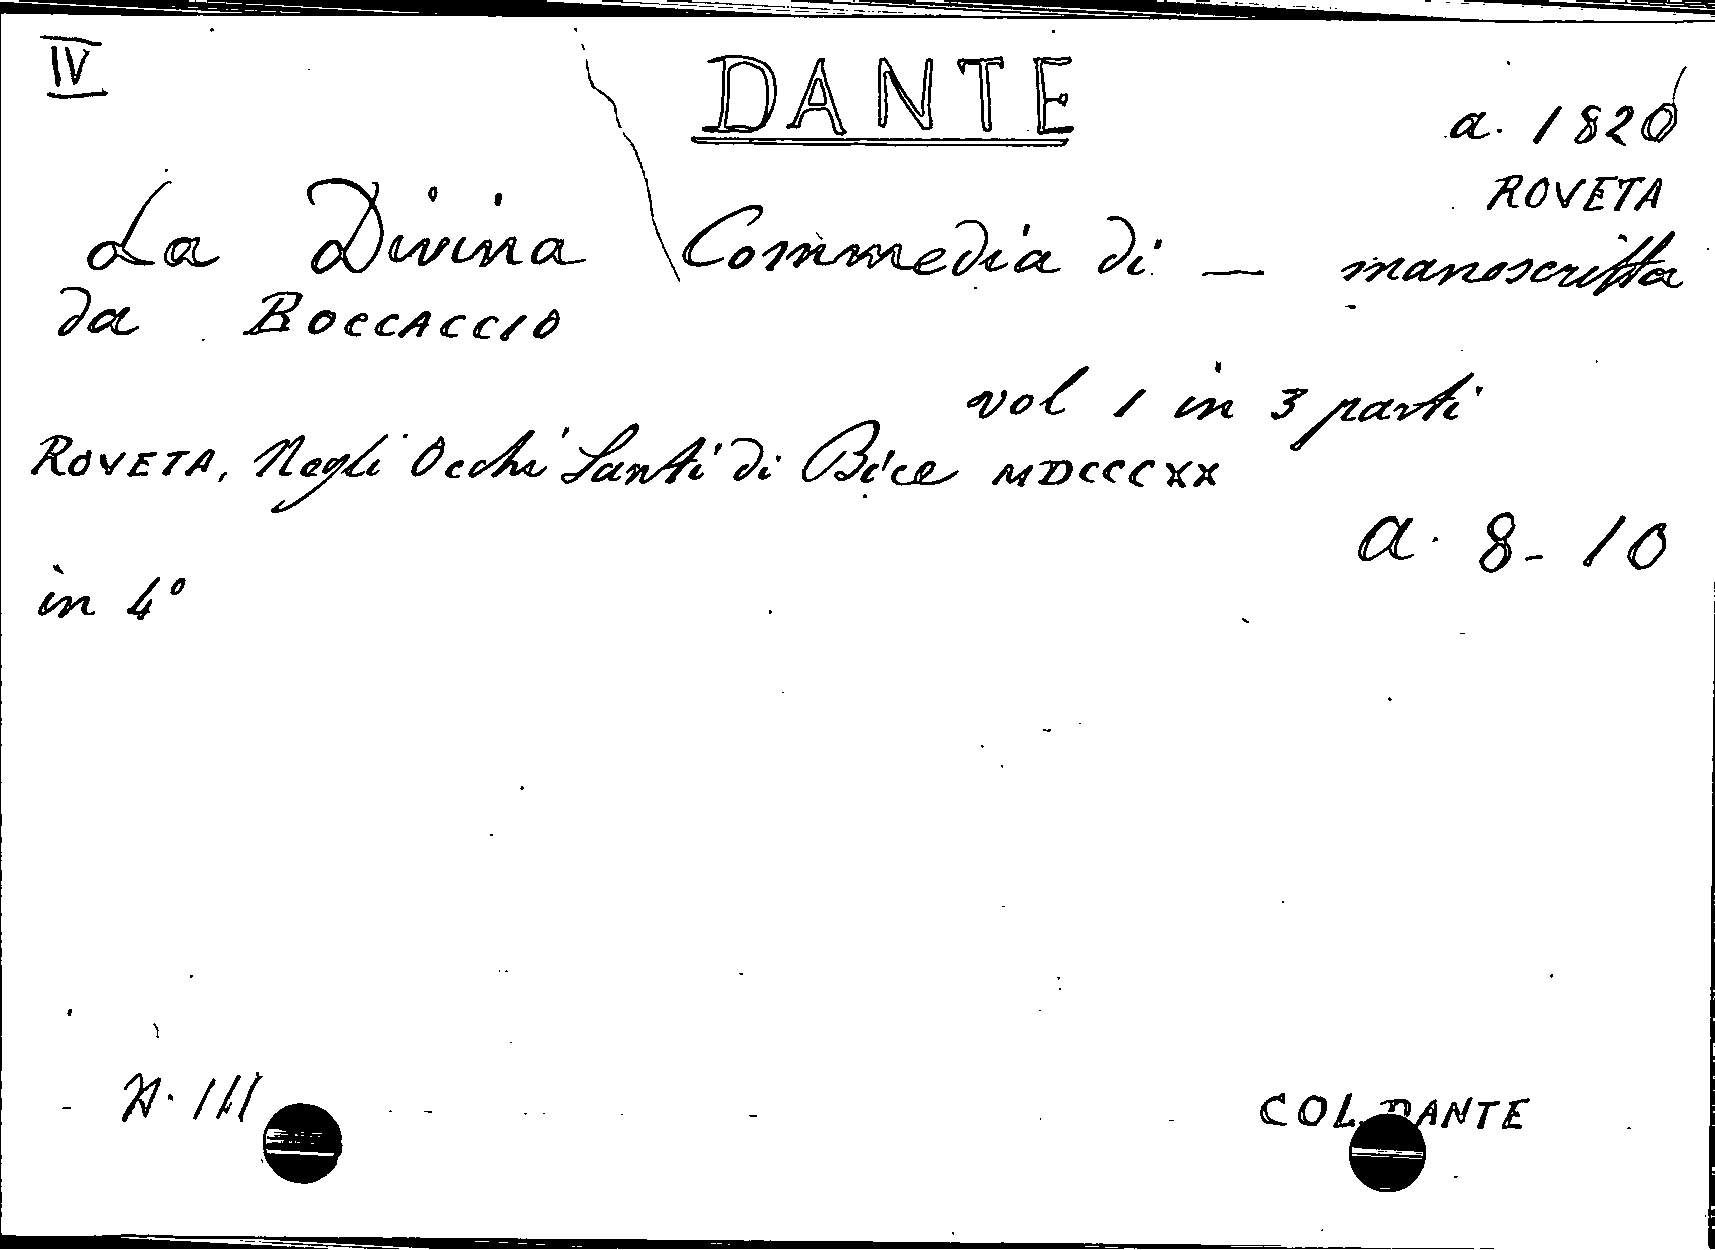 IV
DANTE
a. 1820
ROVETA
La Divina Commedia di — manoscritta
da BOCCACCIO
vol 1 in 3 parti
ROVETA, Negli Occhi Santi di Bice MDCCCXX
a. 8-10
in 4°
N. 111
COL. DANTE